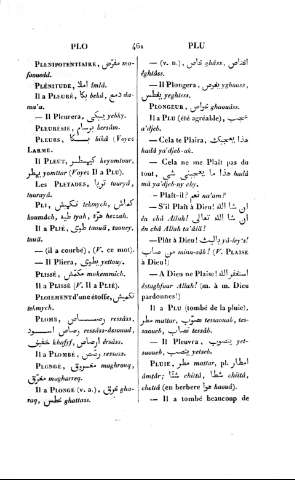 PLO
461
PLU
PLENIPOTENTIAIRE, مفوّض mo-
fauudd.
PLÉNITUDE, املا imlâ.
Il a PLEURÉ, بكا bekâ, دمع da-
ma'a.
— Il Pleurera, يبكي yebky.
PLEURESIE, برسام bersâm.
PLEURS, بكا bikâ (Voyez
LARME.
Il PLEUT, كيمطر keymtour,
يمطر yomttar (Voyez Il a PLU).
Les PLEYADES, ثريا touryâ,
tourayâ.
PLI, تكميش tekmych, كماش
koumâch, طية tyah, حزة hezzah.
Il a PLIÉ, طوى taouä, touey,
touä.
— (il a courbé), (V. ce mot).
— Il Pliera, يطوي yettouy.
PLISSÉ, مكمش mokemmich.
Il a PLISSÉ (V. Il a PLIÉ).
PLOIEMENT d'une étoffe, تكميش
tekmych.
PLOMB, رصاص ressâss, رصاص
اسود ressâss-âsouad,
خفيف khofyf, ارصاص ârsâss.
Il a PLOMBÉ, رصص ressess.
PLONGÉ, مغروق maghrouq,
مغرّق magharreq.
Il a PLONGÉ (v. a.), غرق gha-
raq, غطس ghattass.
— (v. n.), غاص ghâss, اغطس
êghtâss.
— Il Plongera, يغوص yghouss,
يغطس yeghtess.
PLONGEUR, غواص ghaouâss.
Il a PLU (été agréable), عجب
a'djeb.
— Cela te Plaira, هذا يعجبك
hadâ ya'djeb-ak.
— Cela ne me Plaît pas du
tout, هذا ما يعجبني شي hadâ
mâ ya'djeb-ny chy.
— Plaît-il? نعم na'am?
— S'il Plaît à Dieu! ان شا الله
ên châ Allah! ان شا الله تعالى
ên châ Allah ta'âlä!
— Plût à Dieu! يا ليت yâ-ley't!
من صاب min-sâb! (V. PLAISE
à Dieu!)
— A Dieu ne Plaise! استغفر الله
êstaghfour Allah! (m. à m. Dieu
pardonnes!)
Il a PLU (tombé de la pluie),
مطر mattar, تصوب tessaouab, tes-
saoueb, تصاب tessâb.
— Il Pleuvra, يصوب yet-
saoueb, يصب yetseb.
PLUIE, مطر mattar, pl. امطار
âmtâr; شتا chitâ, شتا chitâ,
chetiâ (en berbere هوا haouâ).
— Il a tombé beaucoup de